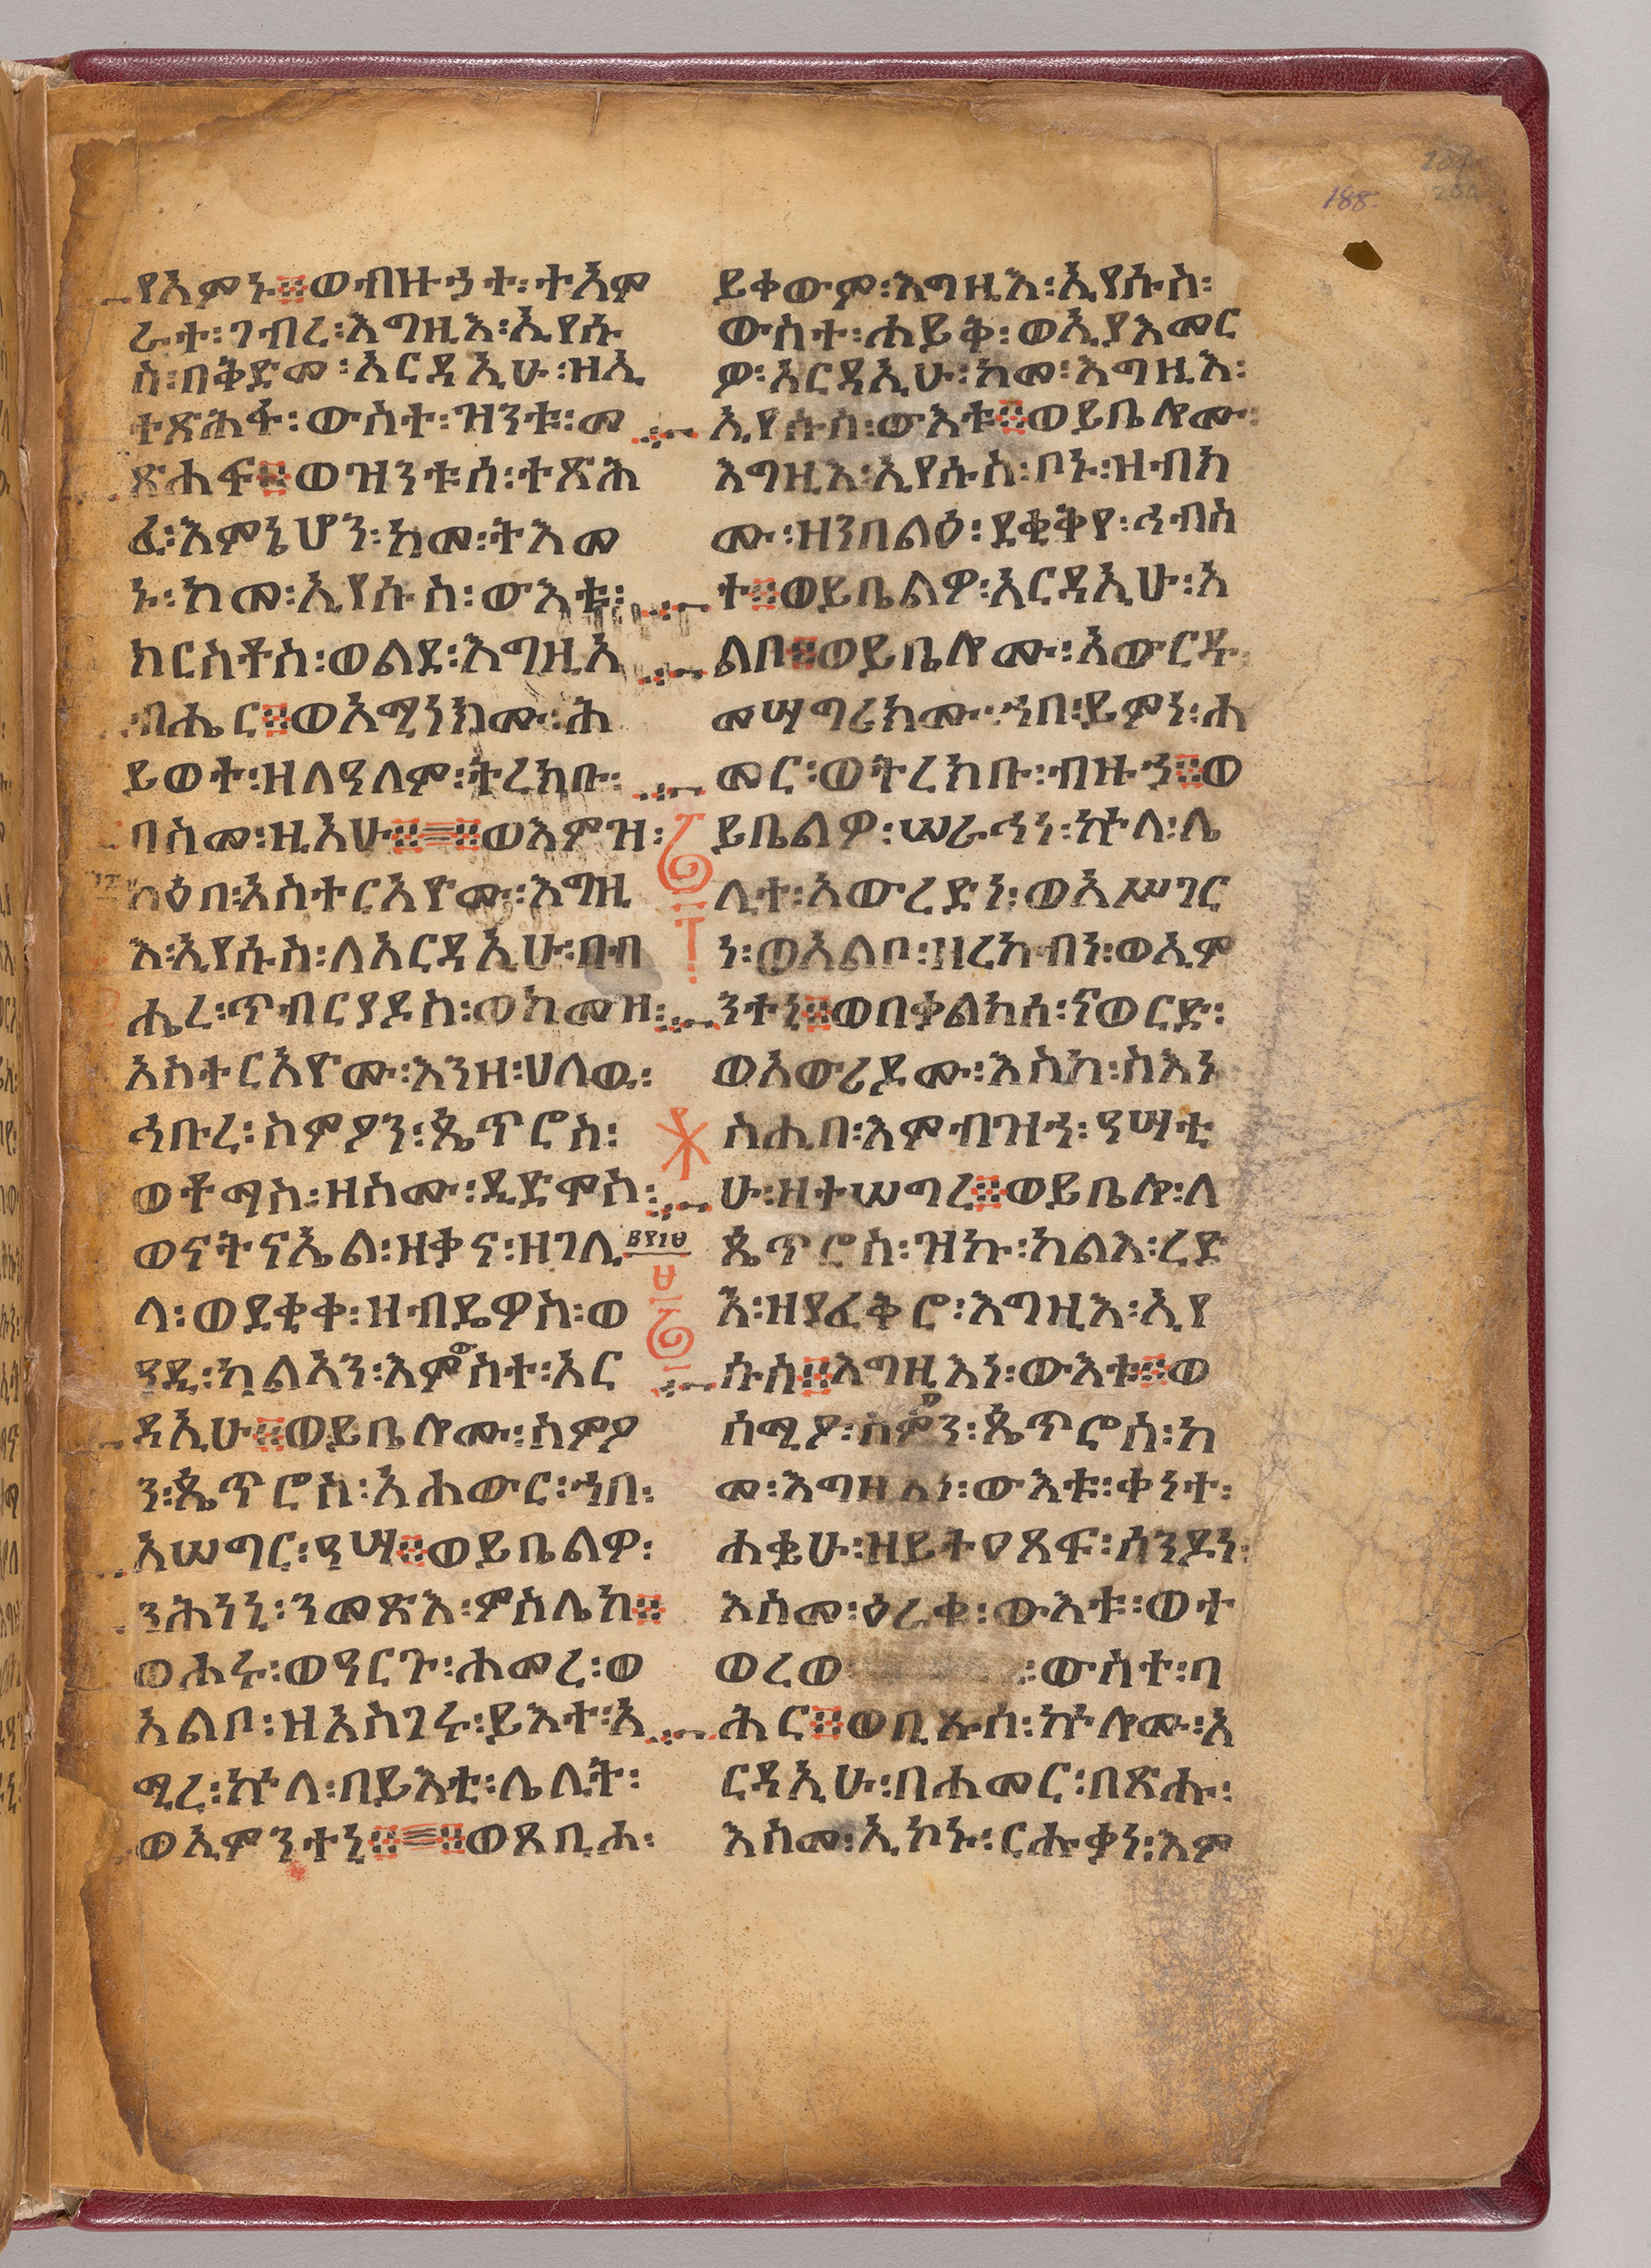 የአምኑ፨ወብዙኃት፡ተአም
ራት፡ገብረ፡እግዚእ፡ኢየሱ
ስ፡በቅድመ፡አርዳኢሁ፡ዝኢ
ተጽሕፋ፡ውስተ፡ዝንቱ፡መ
ጽሐፍ፨ወዝንቱሰ፡ተጽሕ
ፈ፡እምኔሆን፡ከመ፡ትእመ
ኑ፡ከመ፡ኢየሱስ፡ውእቱ፡
ክርስቶስ፡ወልደ፡እግዚአ
ብሔር፨ወአሚነክሙ፡ሕ
ይወት፡ዘለዓለም፡ትረክቡ፡
በስመ፡ዚአሁ፨፨ወእምዝ፡
ካዕበ፡አስተርአዮሙ፡እግዚ
እ፡ኢየሱስ፡ለአርዳኢሁ፡በብ
ሔረ፡ጥብርያዶስ፡ወከመዝ፡
አስተርአዮሙ፡እንዘ፡ሀለዉ፡
ኅቡረ፡ስምዖን፡ጴጥሮስ፡
ወቶማስ፡ዘስሙ፡ዲድሞስ፡
ወናትናኤል፡ዘቃና፡ዘገሊ
ላ፡ወደቂቀ፡ዘብዴዎስ፡ወ
ዓዲ፡ካልኣን፡እምውስተ፡አር
ዳኢሁ፨ወይቤሎሙ፡ስምዖ
ን፡ጴጥሮስ፡አሐውር፡ኀበ፡
አሠግር፡ዓሣ፨ወይቤልዎ፡
ንሕነኒ፡ንመጽእ፡ምስሌከ፨
ወሐሩ፡ወዓርጉ፡ሐመረ፡ወ
አልቦ፡ዘአስገሩ፡ይእተ፡አ
ሚረ፡ኵላ፡በይእቲ፡ሌሊት፡
ወኢምንተኒ፨፨ወጸቢሖ፡
ይቀውም፡እግዚእ፡ኢየሱስ፡
ውስተ፡ሐይቅ፡ወኢያእመር
ዎ፡አርዳኢሁ፡ከመ፡እግዚእ፡
ኢየሱስ፡ውእቱ፨ወይቤሎሙ፡
እግዚእ፡ኢየሱስ፡ቦኑ፡ዘብክ
ሙ፡ዘንበልዕ፡ደቂቅየ፡ኅብስ
ተ፨ወይቤልዎ፡አርዳኢሁ፡አ
ልቦ፨ወይቤሎሙ፡አውርዱ፡
መሣግሪክሙ፡ኀበ፡ይምነ፡ሐ
መር፡ወትረክቡ፡ብዙኅ፨ወ
ይቤልዎ፡ሠራኅነ፡ኵላ፡ሌ
ሊተ፡አውረድነ፡ወአሥገር
ነ፡ወአልቦ፡ዘረከብነ፡ወኢም
ንተኒ፨ወበቃልከሰ፡ናወርድ፡
ወአውሪዶሙ፡እስከ፡ስእኑ
ስሒበ፡እምብዝኀ፡ዓሣቲ
ሁ፡ዘተሠግረ፨ወይቤሎ፡ለ
ጴጥሮስ፡ዝኩ፡ካልእ፡ረድ
እ፡ዘያፈቅሮ፡እግዚእ፡ኢየ
ሱስ፨እግዚእነ፡ውእቱ፨ወ
ሰሚዖ፡ስምዖን፡ጴጥሮስ፡ከ
መ፡እግዚእነ፡ውእቱ፡ቀነተ፡
ሐቌሁ፡ዘይትዐጸፍ፡ሰንዶነ፡
እስመ፡ዕራቁ፡ውእቱ፡ወተ
ወረወ ፡ውስተ፡ባ
ሕር፨ወቢጹሰ፡ኵሎሙ፡አ
ርዳኢሁ፡በሐመር፡በጽሑ፡
እስመ፡ኢኮኑ፡ርሑቃነ፡እም
188.